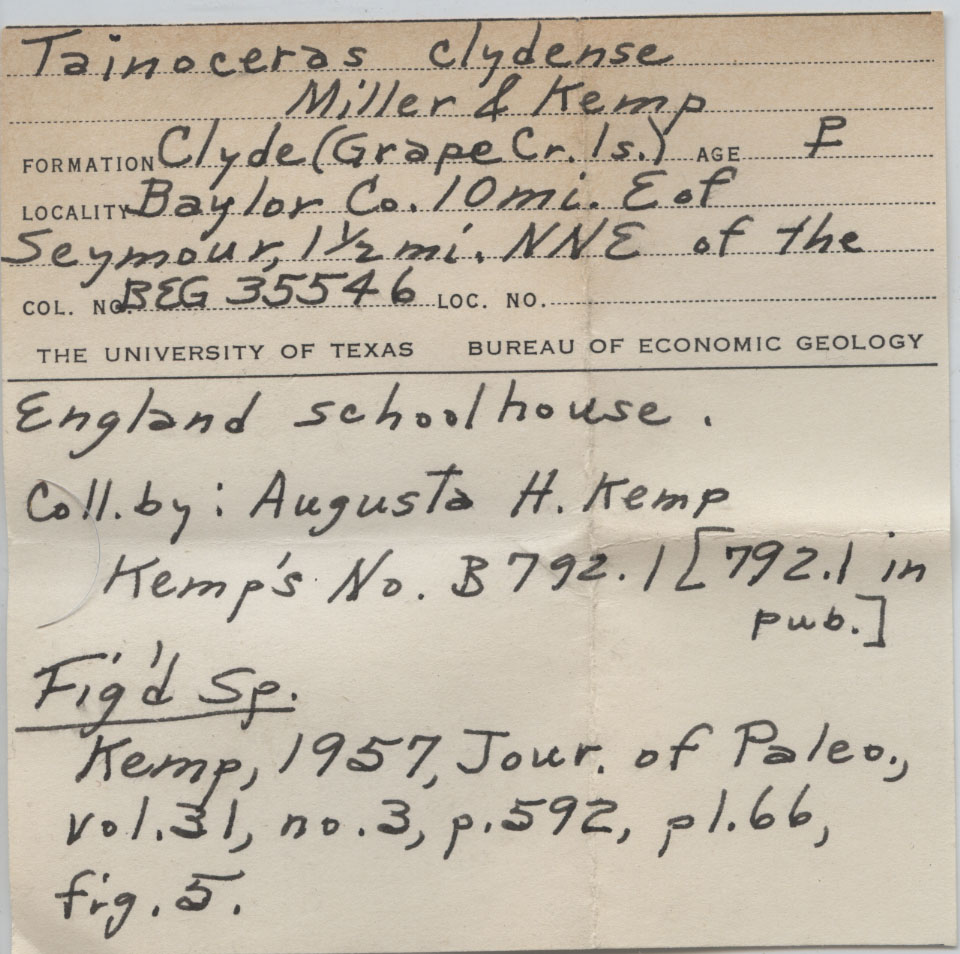 Tainoceras clydense
Miller & Kemp
FORMATION Clyde (Grape Cr. ls.) AGE P
LOCALITY Baylor Co. 10 mi. E of
Seymour, 1 1/2 mi. NNE of the
COL. NO. BEG 35546 LOC. NO.
THE UNIVERSITY OF TEXAS BUREAU OF ECONOMIC GEOLOGY
England schoolhouse.
Coll. by: Augusta H. Kemp
Kemp's No. B 792.1 [792.1 in
pub.]
Fig'd Sp.
Kemp, 1957, Jour. of Paleo.,
vol. 31, no. 3, p. 592, pl. 66,
fig. 5.